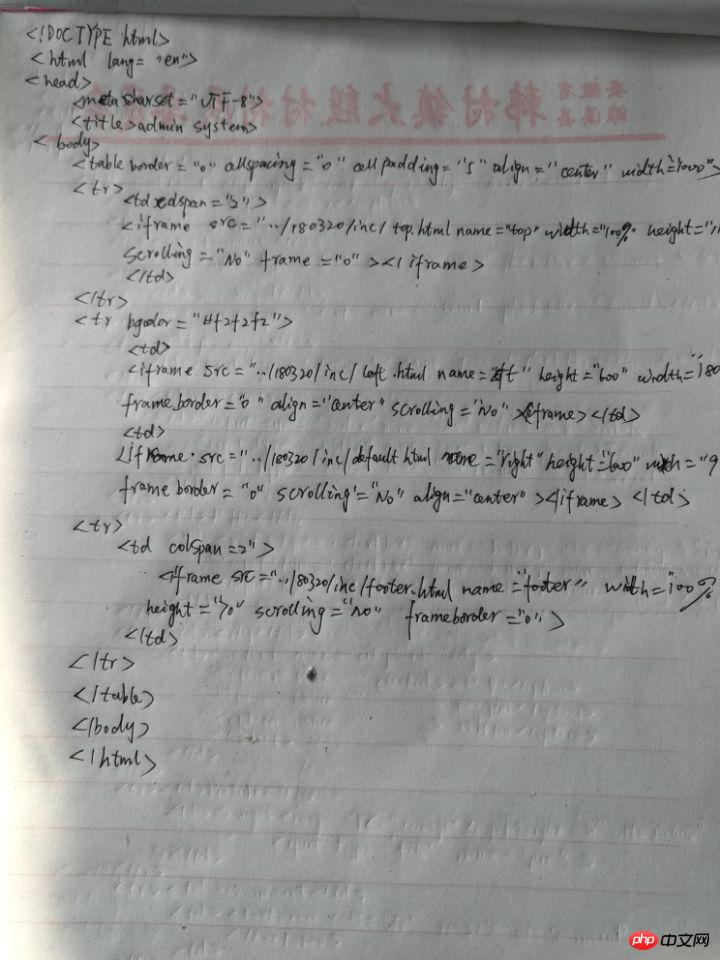 <!DOCTYPE html>
<html lang= "en">
<head>
<meta charset="UTF-8">
<title>admin system>
<body>
<table border="0" cellspacing="0" cellpadding="5" align="center" width="1000">
<tr>
<td colspan="2">
<iframe src="../180320/inc/top.html name="top" width="100%" height="
scrolling="No" frame="0"></iframe>
</td>
</tr>
<tr bgcolor="#f2f2f2">
<td>
<iframe src="../180320/inc/left.html name= height="600" width="180
frameborder="0" align="center" scrolling="No"></iframe></td>
<td>
<iframe src="../180320/inc/default.html name="right" height="600" width="9
frameborder="0" scrolling="No" align="center"></iframe></td>
<tr>
<td colspan=2">
<iframe src="../180320/inc/footer.html name="footer" width="100%
height="70" scrolling="No" frameborder="0">
</td>
</tr>
</table>
</body>
</html>
php 中文网